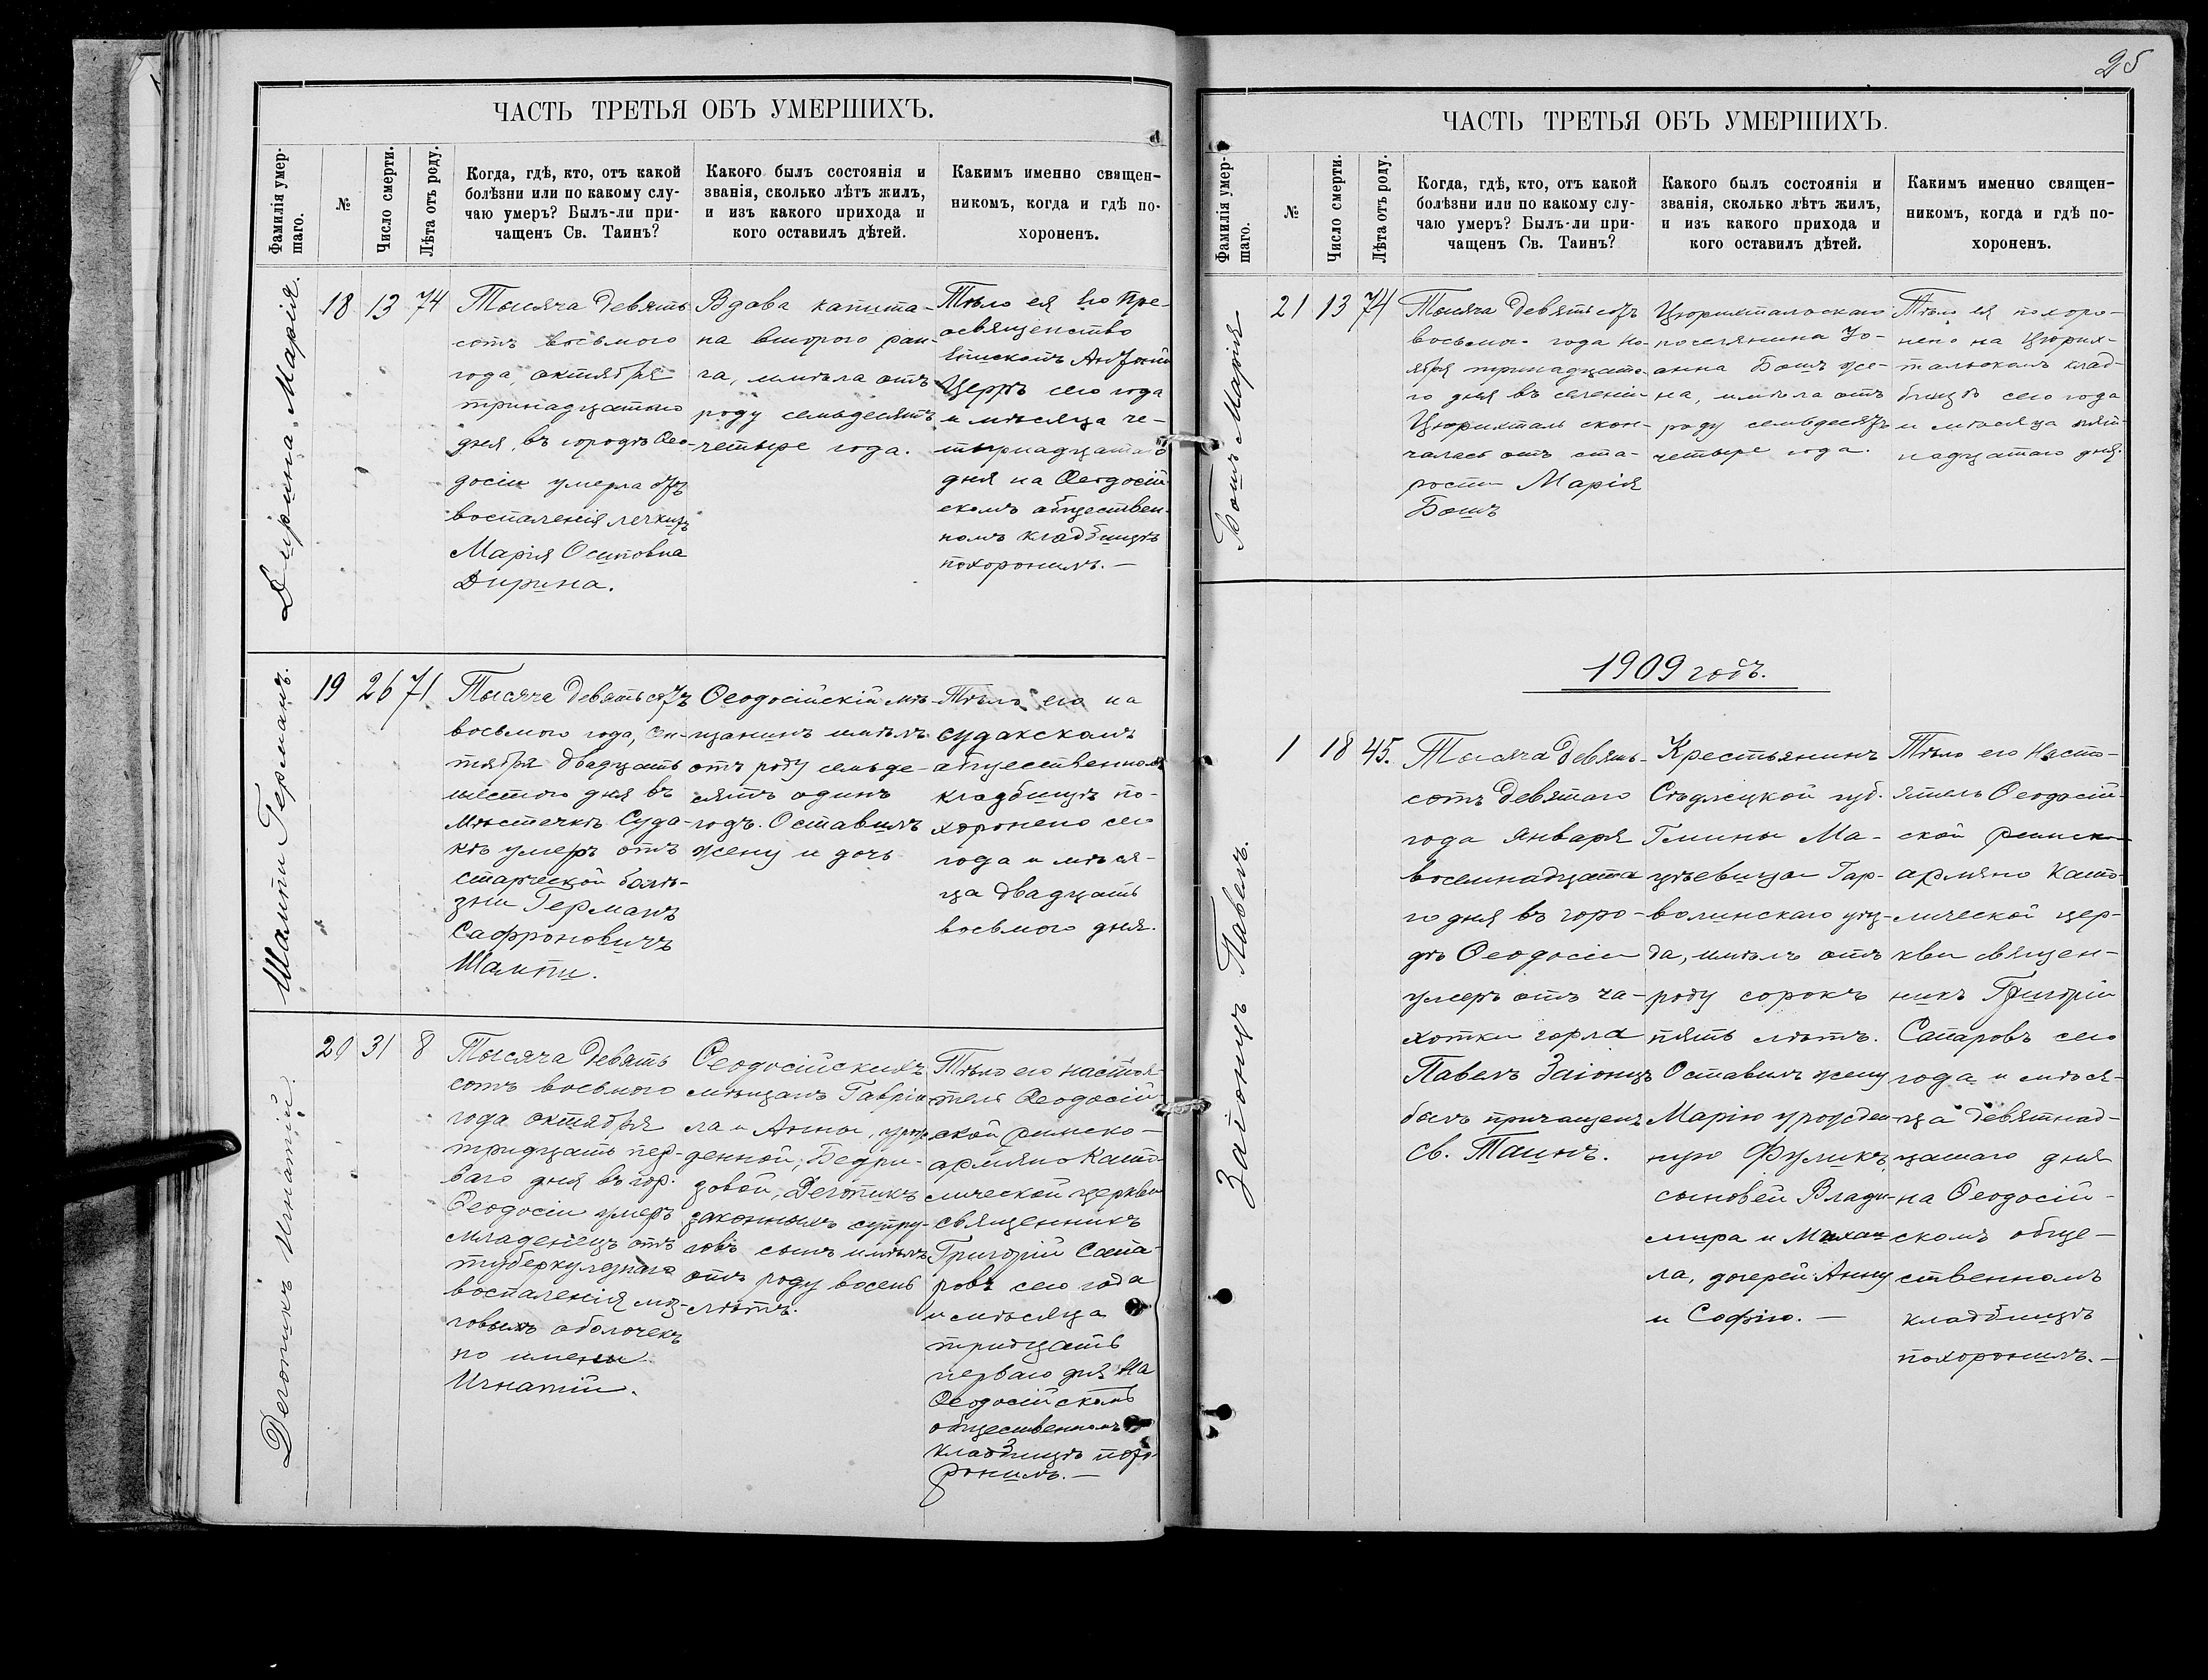 25
ЧАСТЬ ТРЕТЬЯ ОБЪ УМЕРШИХЪ.
Фамилія умер-
шаго.
№
Число смерти.
Лѣта отъ роду.
Когда, гдѣ, кто, отъ какой
болѣзни или по какому слу-
чаю умеръ? Былъ-ли при-
чащенъ Св. Таинъ?
Какого былъ состоянія и
званія, сколько лѣтъ жилъ,
и изъ какого прихода и
кого оставилъ дѣтей.
Какимъ именно священ-
никомъ, когда и гдѣ по-
хороненъ.
Дирина Марія.
18
13
74
Тысяча девять
сотъ восьмого
года, октября
тринадцатого
дня, въ городѣ Ѳео-
досіи умерла отъ
воспаленія легкихъ
Марія Осиповна
Дирина.
Вдова капита-
на второго ран-
га, имѣла отъ
роду семьдесятъ
четыре года.
Тѣло ея Его Прe-
освященство
Епископъ Антоній
Церръ сего года
и мѣсяца че-
тырнадцатаго
дня на Ѳеодосій
скомъ обществен-
номъ кладбищѣ
похоронилъ. —
Шампи Германъ.
19
26
71
Тысяча девятьсотъ
восьмого года, Ок-
тября двадцать
шестого дня въ
Мѣстечкѣ Суда-
кѣ умеръ отъ
старческой болѣ-
зни Германъ
Сафроновичъ
Шампи.
Ѳеодосійскій мѣ-
щанинъ имѣлъ
отъ роду семьде-
сятъ одинъ
годъ. Оставилъ
жену и дочь
Тѣло его на
судакскомъ
общественномъ
кладбищѣ по-
хоронено сего
года и мѣся-
ца двадцать
восьмого дня.
Деготикъ Игнатій.
20
31
8
Тысяча девять
сотъ восьмого
года октября
тридцать пер-
ваго дня въ гор.
Ѳеодосіи умеръ
младенецъ отъ
туберкулезнаго
воспаленія моз-
говыхъ оболочекъ
по имени
Игнатій.
Ѳеодосійскихъ
мѣщанъ Гаврі-
ла и Анны, урож
денной, Бедри-
зовой, Деготикъ
законныхъ супру-
говъ сынъ имѣлъ
отъ роду восемь
лѣтъ.
Тѣло его настоя-
тель Ѳеодосій
ской римско-
армяно Като
лической церкви
священникъ
Григорій Сапа-
ровъ сего года
и мѣсяца
тридцать
перваго дня на
Ѳеодосійскомъ
общественномъ
кладбищѣ похо-
ронилъ. —
ЧАСТЬ ТРЕТЬЯ ОБЪ УМЕРШИХЪ.
Фамилія умер-
шаго.
№
Число смерти.
Лѣта отъ роду.
Когда, гдѣ, кто, отъ какой
болѣзни или по какому слу-
чаю умеръ? Былъ-ли при-
чащенъ Св. Таинъ?
Какого былъ состоянія и
званія, сколько лѣтъ жилъ,
и изъ какого прихода и
кого оставилъ дѣтей.
Какимъ именно священ-
никомъ, когда и гдѣ по-
хороненъ.
Бошъ Марія
21
13
74
Тысяча девятьсотъ
восьмого года но-
ября тринадцата-
го дня въ селеніи
Цюрихталь скон-
чалась отъ ста-
рости Марія
Бошъ
Цюрихтальскаго
поселянина Іо-
анна Бошъ же-
на, имѣла отъ
роду семьдесятъ
четыре года.
Тѣло ея похоро-
нено на Цюрих-
тальскомъ клад-
бищѣ сего года
и мѣсяца пят-
надцатаго дня.
1909 годъ.
Заіонцъ Павелъ.
1
18
45.
Тысяча девять-
сотъ девятаго
года января
восемнадцата
го дня въ горо-
дѣ Ѳеодосіи
умеръ отъ ча-
хотки горла
Павелъ Заіонцъ
былъ причащенъ
Св. Таинъ.
Крестьянинъ
Сѣдлецкой губ.
Гмины Ма-
цѣевицы Гар-
волинскаго уѣз-
да, имѣлъ отъ
роду сорокъ
пять лѣтъ.
Оставилъ жену
Марію урожден-
ную Фуликъ,
сыновей Влади-
мира и Михаи
ла, дочерей Анну
и Софію. —
Тѣло его Насто-
ятель Ѳеодосій-
ской римско
армяно Като-
лической цер-
кви священ-
никъ Григорій
Сапаровъ сего
года и мѣся-
ца девятнад-
цатаго дня
на Ѳеодосій-
скомъ обще-
ственномъ
кладбищѣ
похоронилъ. —